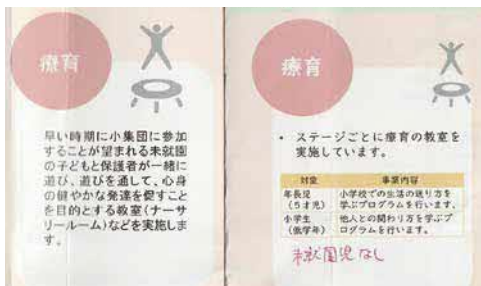 療育
早い時期に小集団に参加
することが望まれる未就園
の子どもと保護者が一緒に
遊び、遊びを通して、心身
の健やかな発達を促すこと
を目的とする教室(ナーサ
リールーム)などを実施しま
す。
療育
・ ステージごとに療育の教室を
実施しています。
対象 事業内容
年長児 小学校での生活の送り方を
(5才児) 学ぶプログラムを行います。
小学生 他人との関わり方を学ぶプ
(低学年) ログラムを行います。
未就園児なし